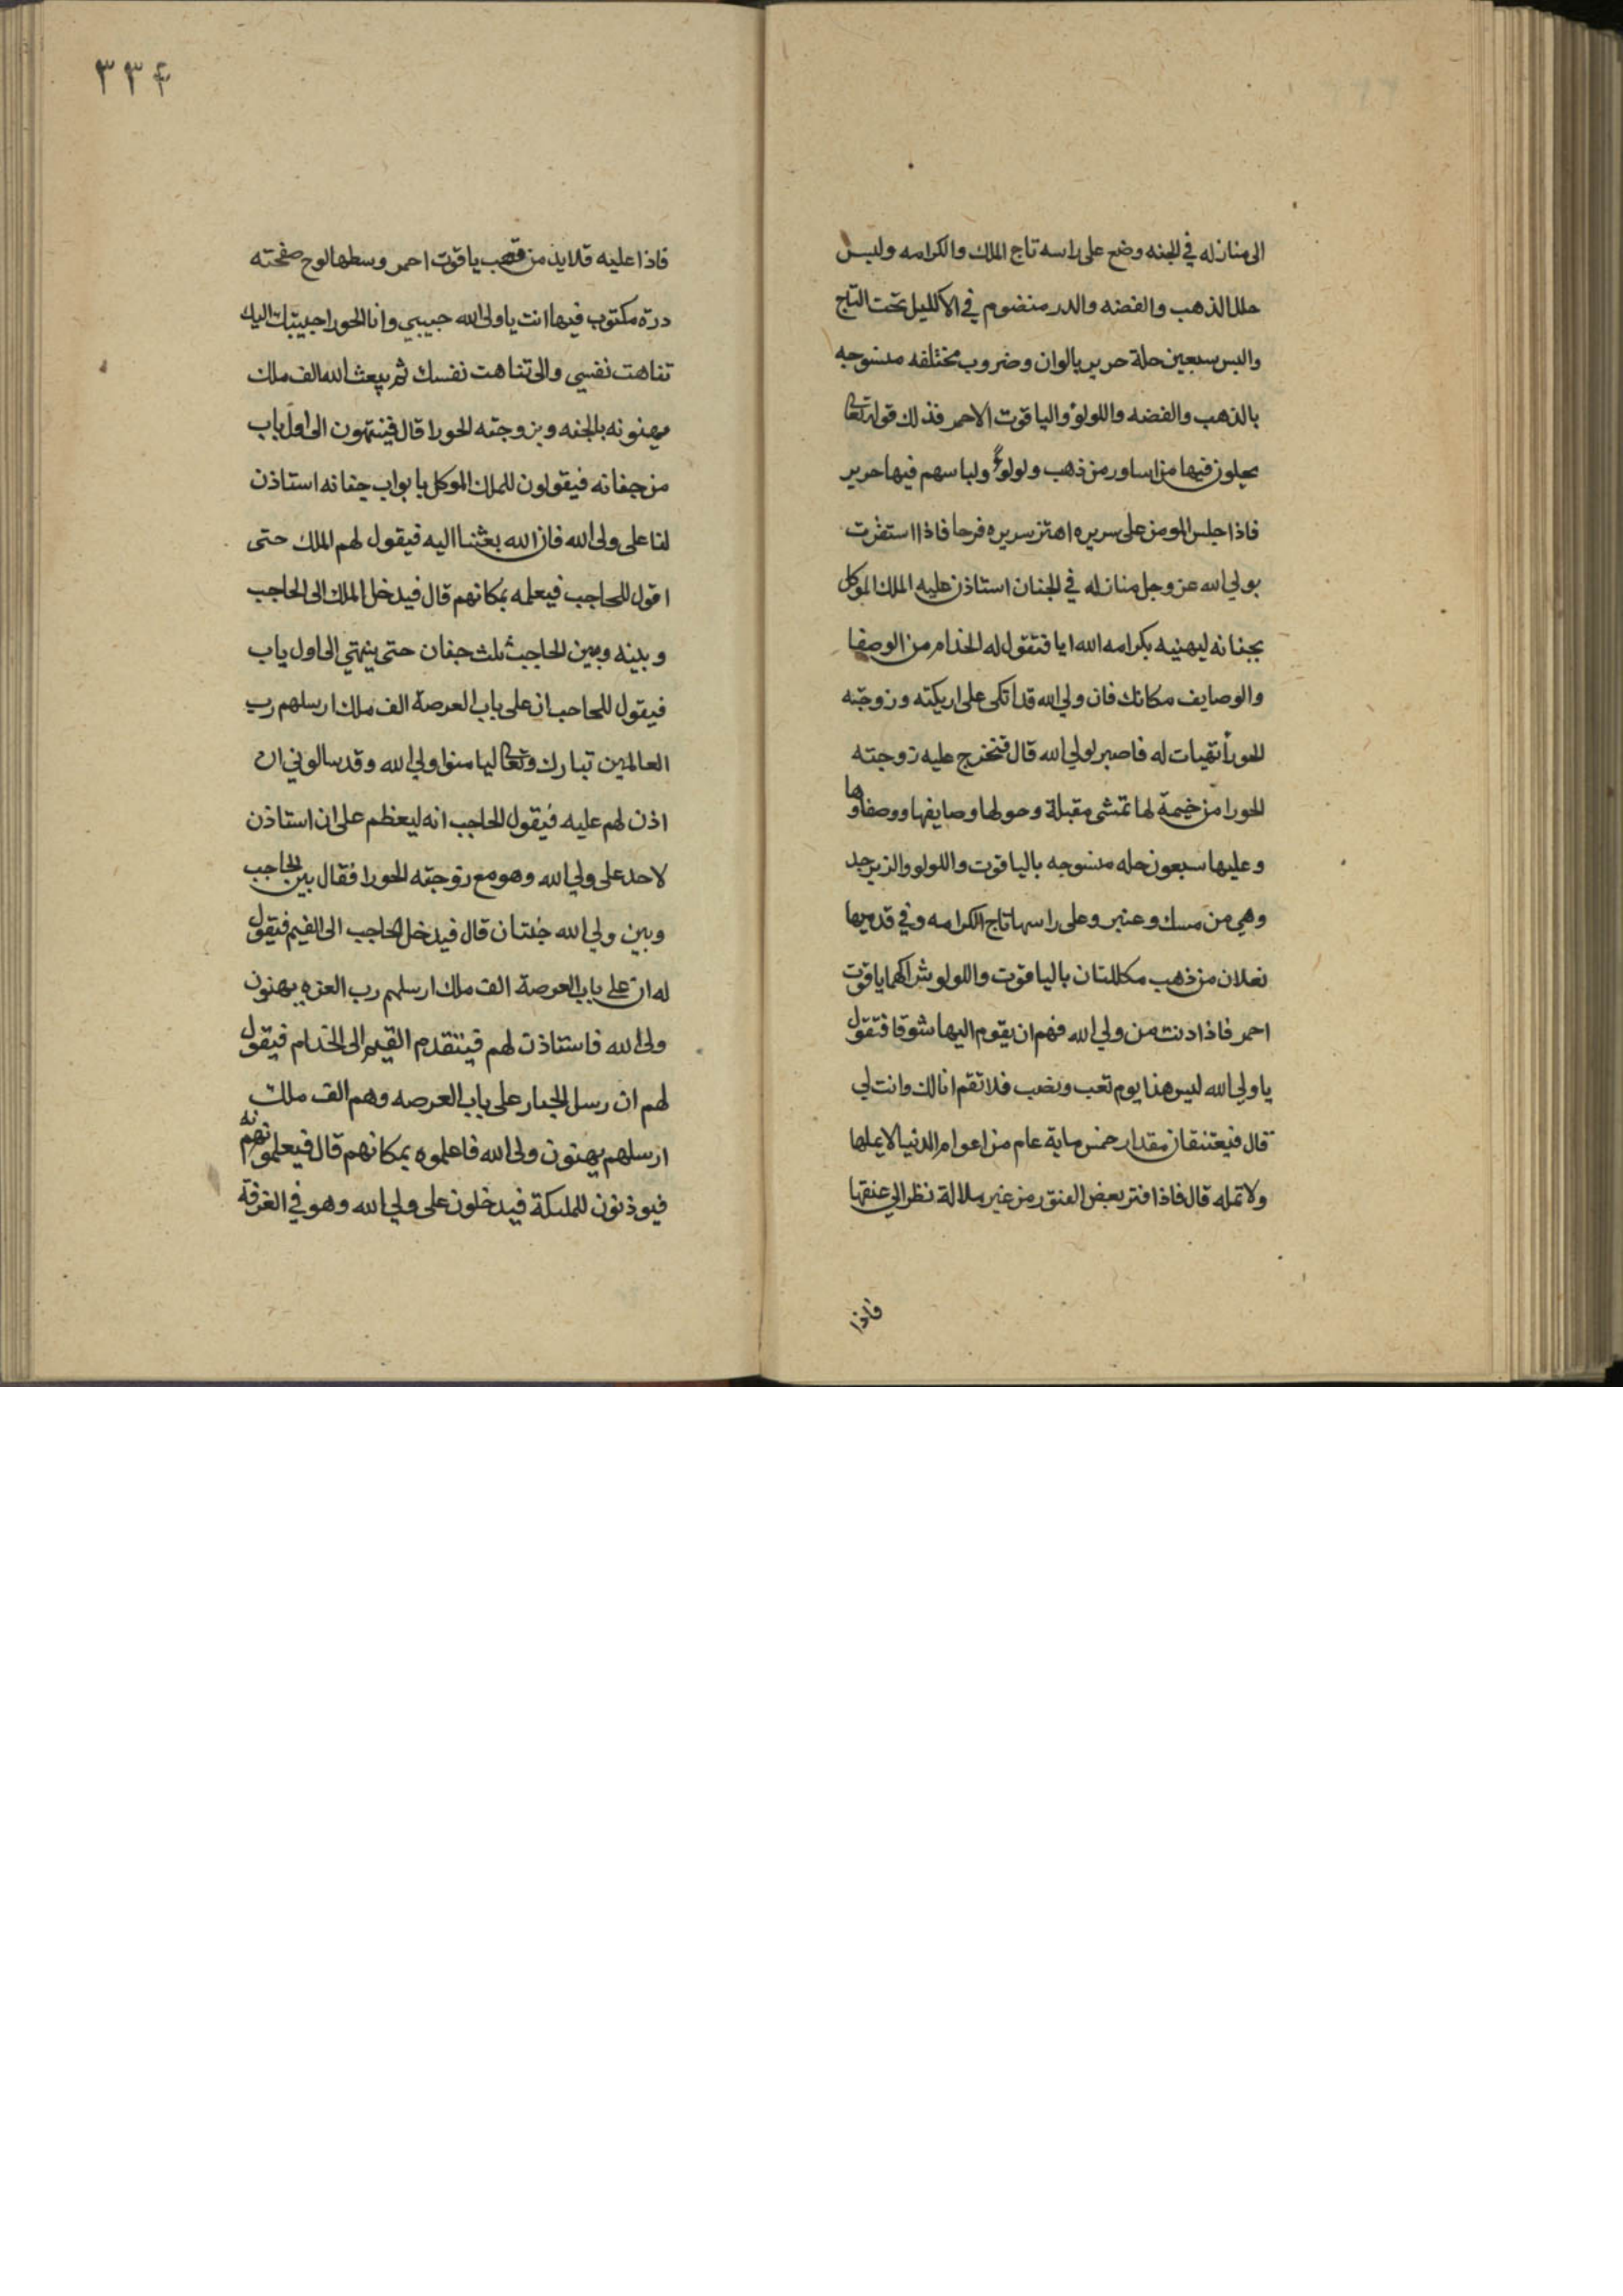 الى منازله في الجنه وضع على راسه تاج الملك والكرامه ولبس
حلل الذهب والفضه والدر منضوم في الاكليل تحت التاج
والبس سبعين حلة حرير بالوان وضروب مختلفه منسوجه
بالذهب والفضه واللولؤ والياقوت الاحمر فذلك قوله تعالى
يحلون فيها من اساور من ذهب ولولؤ ولباسهم فيها حرير
فاذا جلس المومن على سريره اهتز سريره فرحا فاذا استقرت
بولي الله عز وجل منازله في الجنان استاذن عليه الملك الموكل
بجنانه ليهنيه بكرامه الله ايا فتقول له الخدام من الوصفا
والوصايف مكانك فان ولي الله قد اتكى على اريكته وزوجته
الحورا تهيات له فاصبر لولي الله قال فتخرج عليه زوجته
الحورا من خيمة لها تمشى مقبلة وحولها وصايفها ووصفاوها
وعليها سبعون حله منسوجه بالياقوت واللولو والزبرجد
وهي من مسك وعنبر وعلى راسها تاج الكرامه وفي قدميها
نعلان من ذهب مكللتان بالياقوت واللولو شراكهما ياقوت
احمر فاذا ادنت من ولي الله فهم ان يقوم اليها شوقا فتقول
يا ولي الله ليس هذا يوم تعب ونصب فلا تقم انا لك وانت لي
قال فيعتنقان مقدار خمس ماية عام من اعوام الدنيا لا يملها
ولا تمله قال فاذا فتر بعض الفتور من غير ملالة نظر الى عنقها
فاذا
٣٣٤
فاذا عليه قلايد من قصب ياقوت احمر وسطها لوح صفحته
درة مكتوب فيها انت يا ولى الله حبيبي وانا الحورا حبيبتك اليك
تناهت نفسي والى تناهت نفسك ثم يبعث الله الف ملك
يهنونه بالجنه ويزوجته الحورا قال فينتهون الى اول باب
من جنانه فيقولون للملك الموكل بابواب جنانه استاذن
لنا على ولى الله فان الله بعثنا اليه فيقول لهم الملك حتى
اقول للحاجب فيعلمه بمكانهم قال فيدخل الملك الى الحاجب
وبينه وبين الحاجب ثلث جنان حتى ينتهي الى اول باب
فيقول للحاجب ان على باب العرصة الف ملك ارسلهم رب
العالمين تبارك وتعالى ليهنوا ولي الله وقد سالوني ان
اذن لهم عليه فيقول الحاجب انه ليعظم على ان استاذن
لاحد على ولي الله وهو مع زوجته الحورا فقال بين الحاجب
وبين ولي الله جنتان قال فيدخل الحاجب الى القيم فيقول
له ان على باب العرصة الف ملك ارسلهم رب العزه يهنون
ولى الله فاستاذن لهم فيتقدم القيم الى الخدام فيقول
لهم ان رسل الجبار على باب العرصه وهم الف ملك
ارسلهم يهنون ولى الله فاعلموه بمكانهم قال فيعلمونه
فيوذنون للملىكة فيدخلون على ولي الله وهو في الغرفة